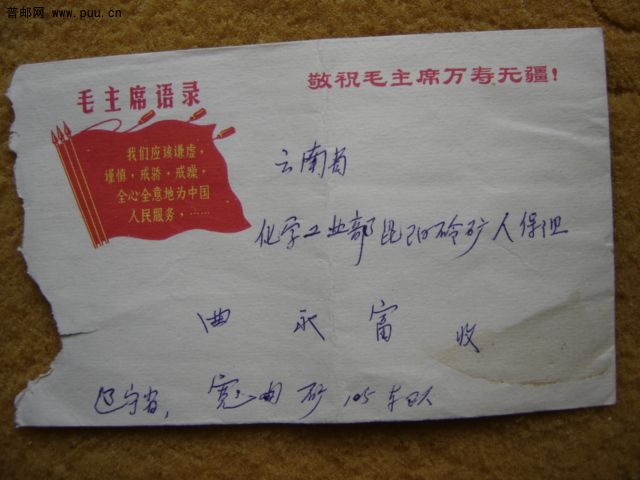 普邮网 www.puu.cn
敬祝毛主席万寿无疆！
毛主席语录
我们应该谦虚，
谨慎，戒骄，戒躁，
全心全意地为中国
人民服务，……
云南省
化学工业部昆阳磷矿人保组
曲永富 收
辽宁省，宽甸矿 105车队